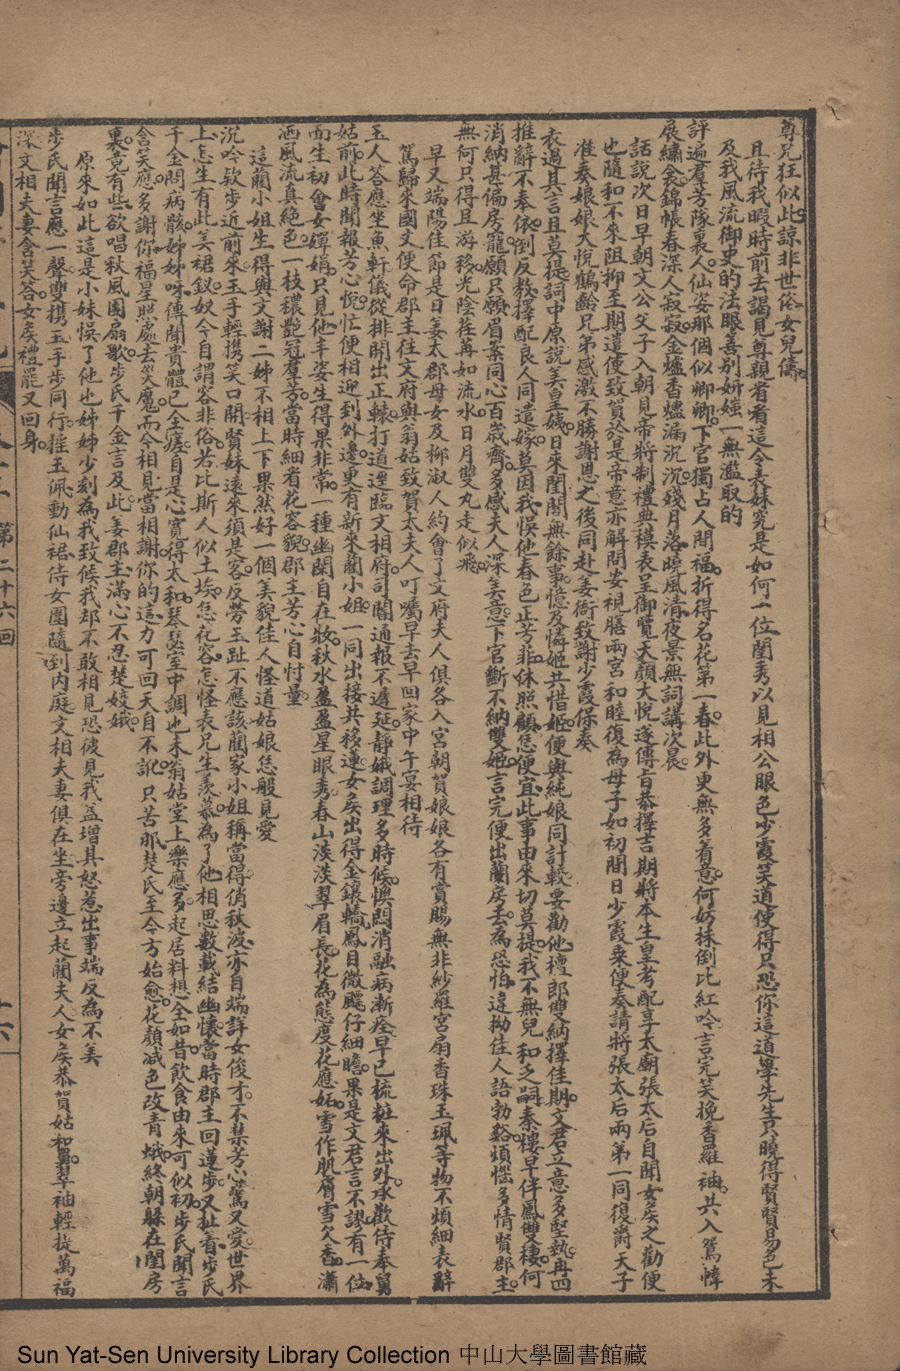 尊兄狂似此諒非世俗女兒儔
且待我暇時前去謁見尊親者看這令表妹究是如何一位閨秀以見相公眼色少霞笑道使得只恐你這道學先生只曉得賢賢易色未
及我風流御史的法眼善別妍媸一無濫取的
評遍羣芳隊裏人仙姿那個似卿卿下宮獨占人間福折得名花第一春此外更無多着意何妨抹倒比紅吟言完笑挽香羅袖共入鴛幃
展繡衾錦帳春深人寂寂金爐香燼漏沉沉殘月落曉風清夜景無詞講次晨
話說次日早朝文公父子入朝見帝將制禮典模表呈御覽天顏大悅遂傳旨恭擇吉期將本生皇考配享太廟張太后自聞女矦之勸便
也隨和不來阻抑至期遣使致賀於是帝意亦解問安視膳兩宮和睦復為母子如初間日少霞乘便奏請將張太后兩弟一同復爵天子
准奏娘娘大悅鶴齡兄弟感激不勝謝恩之後同赴姜衙致謝少霞保奏
表過其言且莫提詞中原說美皇姨日來閨閣無餘事憶及憐姬共惜姬便與純娘同計較要勸他檀郎雙納擇佳期文君立意多堅執再四
推辭不奉依倒反教擇配良人同遣嫁莫因我悞他春色正芳菲休照顧恁便宜此事由來切莫提我不無兒和乏嗣秦樓早伴鳳雙棲何
消納甚偏房寵願只願眉案同心百歲齊多感夫人深美意下官斷不納雙姬言完便出蘭房去為恐怕違拗佳人語勃谿煩惱多情賢郡主
無何只得且游移光陰荏苒如流水日月雙丸走似飛
早又端陽佳節是日姜太郡母女及柳淑人約會了文府夫人俱各入宮朝賀娘娘各有賞賜無非紗羅宮扇香珠玉珮等物不煩細表辭
駕歸來國丈便命郡主往文府與翁姑致賀太夫人叮囑早去早回家中午宴相待
玉人答應坐魚軒儀從排開出正轅打道逕臨文相府司閽通報不遲延靜娥調理多時候懊悶消融病漸痊早已梳粧來出外承歡侍奉舅
姑前此時聞報芳心悅忙便相迎到外邊更有新來藺小姐一同出接共移蓮女矦出得金鑲轎鳳目微颺仔細瞻果是文君言不謬有一位
面生初會女嬋娟只見他丰姿生得果非常一種幽閑自在妝秋水盈盈星眼秀春山淡淡翠眉長花為態度花應妬雪作肌膚雪欠香瀟
洒風流真絕色一枝穠艷冠羣芳當時細看花容貌郡主芳心自忖量
這藺小姐生得與文謝二姊不相上下果然好一個美貌佳人怪道姑娘恁般見愛
沉吟欵步近前來玉手輕攜笑口開賢妹遠來須是客反勞玉趾不應該藺家小姐稱當得俏秋波亦自端詳女俊才不禁芳心驚又愛世界
上怎生有此美裙釵奴今自謂容非俗若比斯人似土埃恁花容怎怪表兄生羨慕為了他相思數載結幽懷當時郡主回蓮步又扯着步氏
千金問病骸姊姊呀傳聞貴體已全瘥自是心寬得太和琴瑟室中調也未翁姑堂上樂應多起居料想全如昔飲食由來可似初步氏聞言
含笑應多謝你福星照處去災魔而今相見當相謝你的這力可回天自不訛只苦那楚氏至今方始愈花顏減色改青蛾終朝躲在閨房
裏竟有些欲唱秋風團扇歌步氏千金言及此姜郡主滿心不忍楚姣娥
原來如此這是小妹悞了他也姊姊少刻為我致候我却不敢相見恐彼見我益增其怒惹出事端反為不美
步氏聞言應一聲雙携玉手步同行摧玉佩動仙裙侍女團隨到內庭文相夫妻俱在坐旁邊立起藺夫人女矦恭賀姑和舅翠袖輕提萬福
深文相夫妻含笑答女矦禮罷又回身
第二十六回
十六
Sun Yat-Sen University Library Collection 中山大學圖書館藏